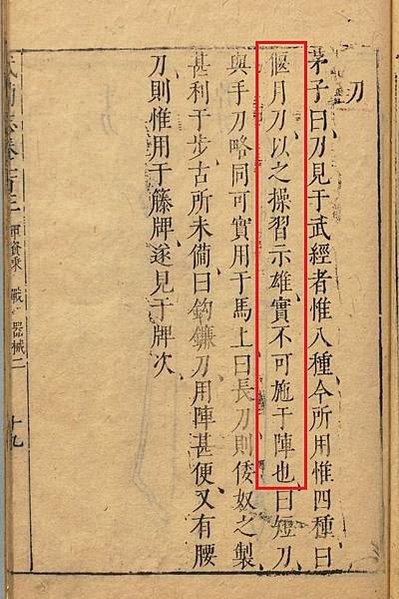 刀
茅子曰刀見于武經者惟八種今所用惟四種曰
偃月刀以之操習示雄實不可施于陣也曰短刀
與手刀略同可實用于馬上曰長刀則倭奴之製
甚利于步古所未備曰鉤鐮刀用陣甚便又有腰
刀則惟用于籐牌遂見于牌次
武備志卷一百三 軍資乘 戰 器械二 十九